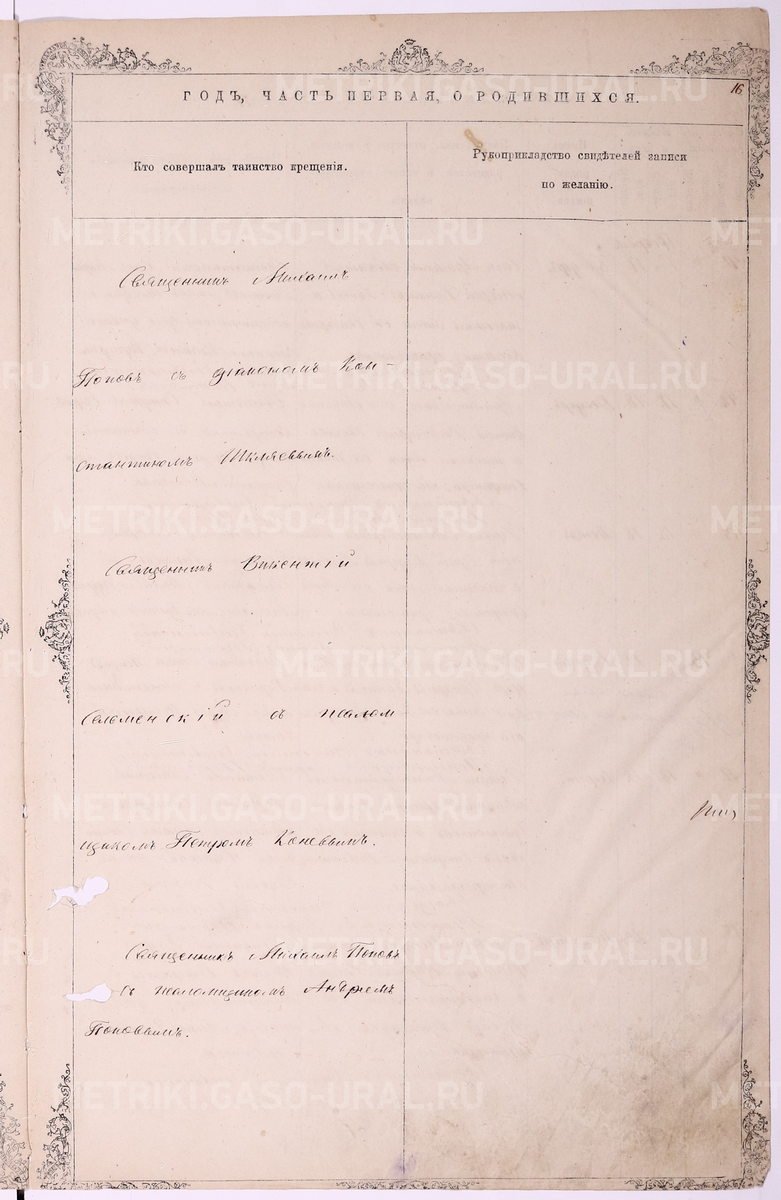 16
ГОДЪ, ЧАСТЬ ПЕРВАЯ, О РОДИВШИХСЯ.
Кто совершалъ таинство крещенія.
Рукоприкладство свидѣтелей записи
по желанію.
Священникъ Михаилъ
Поповъ съ діакономъ Кон-
стантиномъ Шкляевымъ.
Священникъ Викентій
Селменскій съ псалом
щикомъ Петромъ Коневымъ.
Священникъ Михаилъ Поповъ
съ псаломщикомъ Андреемъ
Поповымъ.
METRIKI.GASO-URAL.RU